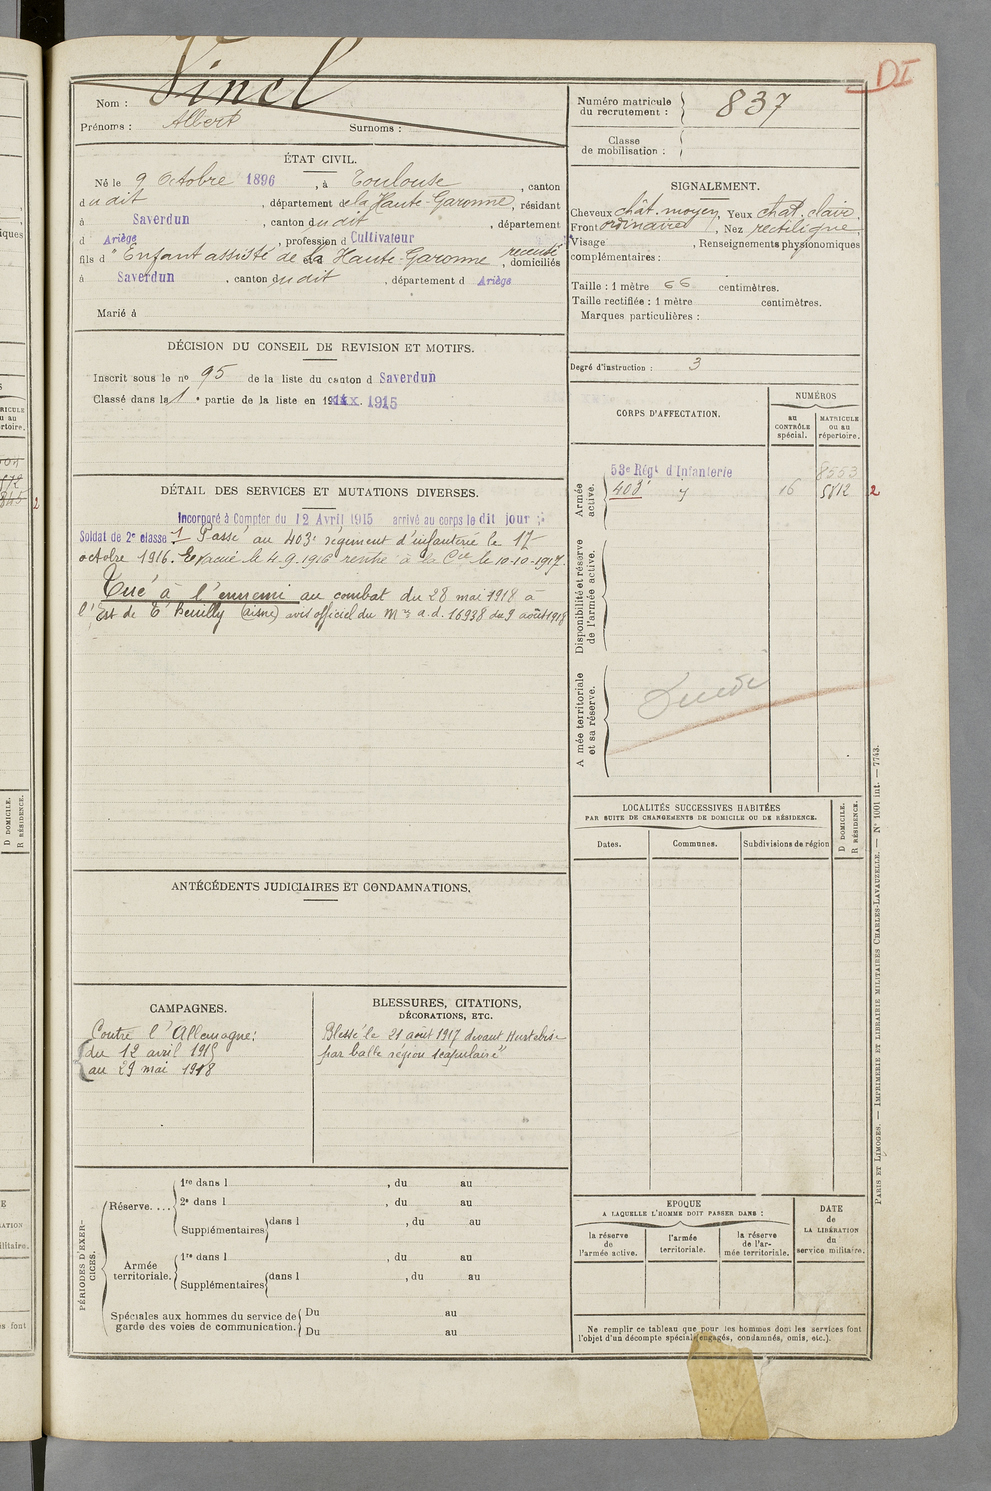 DI
Nom : Vincl
Prénoms : Albert Surnoms :
Numéro matricule
du recrutement : 837
Classe
de mobilisation :
ÉTAT CIVIL.
Né le 9 Octobre 1896, à Toulouse, canton
dudit, département de la Haute-Garonne, résidant
à Saverdun, canton dudit, département
d Ariège, profession d Cultivateur
fils d "Enfant assisté de la Haute-Garonne, domiciliés
à Saverdun, canton dudit, département d Ariège
Marié à
SIGNALEMENT.
Cheveux chât. moyen, Yeux chat. clair,
Front ordinaire, Nez rectiligne,
Visage , Renseignements physionomiques
complémentaires :
Taille : 1 mètre 66 centimètres.
Taille rectifiée : 1 mètre centimètres.
Marques particulières :
Degré d'instruction : 3
DÉCISION DU CONSEIL DE REVISION ET MOTIFS.
Inscrit sous le no 95 de la liste du canton d Saverdun
Classé dans la 1e partie de la liste en 1915
CORPS D'AFFECTATION.
NUMÉROS
au
CONTRÔLE
spécial.
MATRICULE
ou au
répertoire.
Armée
active.
53e Régt d'Infanterie 8553
403e 16 5812 2
Disponibilité et réserve
de l'armée active.
A mée territoriale
et sa réserve.
DÉTAIL DES SERVICES ET MUTATIONS DIVERSES.
Incorporé à Compter du 12 Avril 1915 arrivé au corps le dit jour
Soldat de 2e classe Passé au 403e régiment d'infanterie le 17
octobre 1916. Evacué le 4.9.1916 rentré à la Cie le 10-10-1917.
Tué à l'ennemi au combat du 28 mai 1918 à
l'Est de Reuilly (aisne) avis officiel du a.d. 16938 du 9 août 1918
LOCALITÉS SUCCESSIVES HABITÉES
PAR SUITE DE CHANGEMENTS DE DOMICILE OU DE RÉSIDENCE.
Dates. Communes. Subdivisions de région
D DOMICILE.
R RÉSIDENCE.
ANTÉCÉDENTS JUDICIAIRES ET CONDAMNATIONS.
CAMPAGNES.
Contre l'Allemagne:
du 12 avril 1915
au 29 mai 1918
BLESSURES, CITATIONS,
DÉCORATIONS, ETC.
Blessé le 21 août 1917 devant Hurtebise
par balle région scapulaire"
PÉRIODES D'EXER-
CICES.
Réserve....
1re dans l , du au
2e dans l , du au
Supplémentaires dans l , du au
Armée
territoriale.
1re dans l , du au
Supplémentaires dans l , du au
Spéciales aux hommes du service de
garde des voies de communication.
Du au
Du au
EPOQUE
A LAQUELLE L'HOMME DOIT PASSER DANS :
la réserve
de
l'armée active.
l'armée
territoriale.
la réserve
de l'ar-
mée territoriale.
DATE
de
LA LIBÉRATION
du
service militaire.
Ne remplir ce tableau que pour les hommes dont les services font
l'objet d'un décompte spécial (engagés, condamnés, omis, etc.).
PARIS ET LIMOGES. — IMPRIMERIE ET LIBRAIRIE MILITAIRES CHARLES-LAVAUZELLE. — No 1001 int. — 7743.
D DOMICILE.
R RÉSIDENCE.